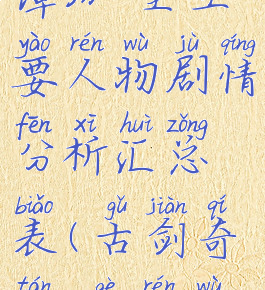 yào rén wù jù qíng
要人物剧情
fēn xī huì zǒng
分析汇总
biǎo gǔ jiàn qí
表(古剑奇
tán gè rén wù